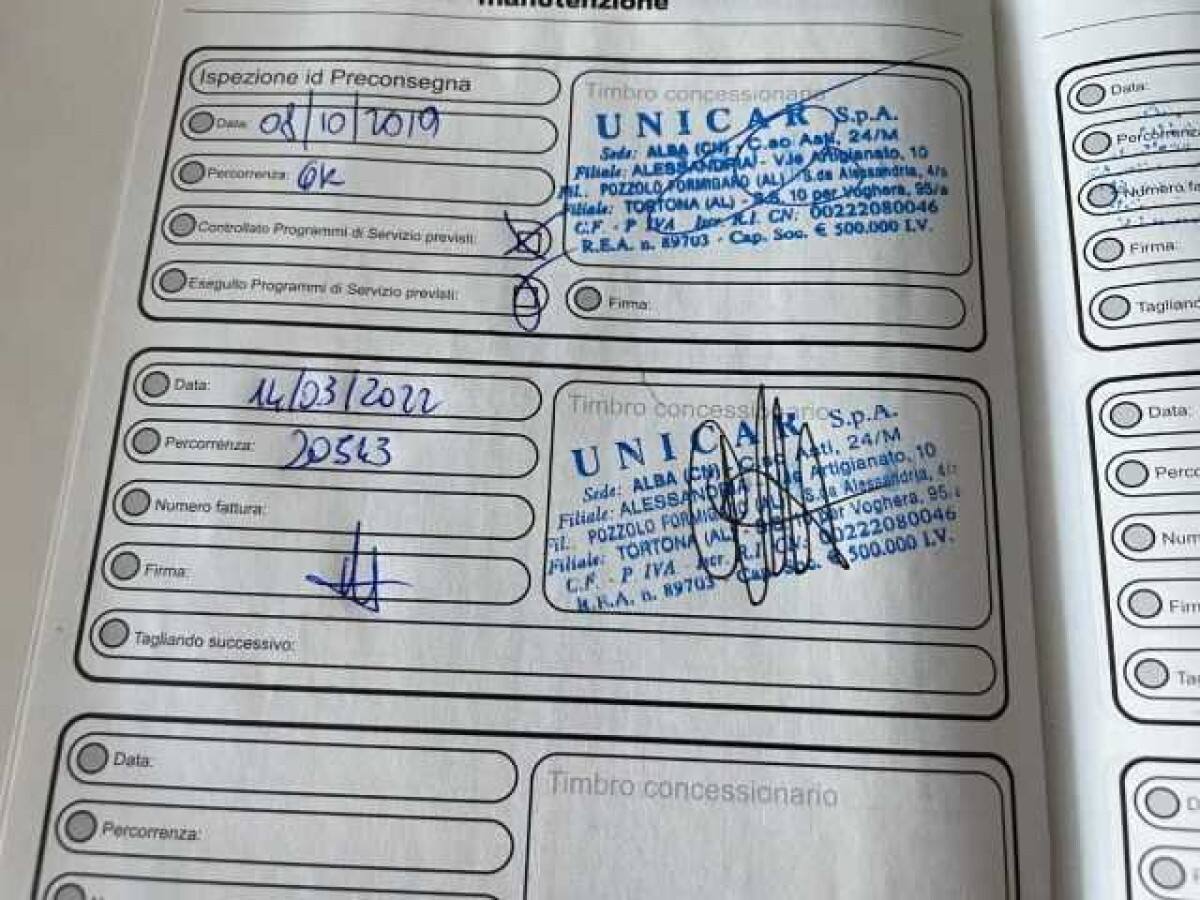 manutenzione
Ispezione id Preconsegna
Data: 08/10/2019
Percorrenza: 6K
Controllato Programmi di Servizio previsti:
Eseguito Programmi di Servizio previsti:
Timbro concessionario
UNICAR S.p.A.
Sede: ALBA (CN) - C.so Asti, 24/M
Filiale: ALESSANDRIA - V.le Artigianato, 10
Fil. POZZOLO FORMIGARO (AL) - S.da Alessandria, 4/a
Filiale: TORTONA (AL) - S.S. 10 per Voghera, 95/a
C.F. - P IVA Iscr. R.I. CN: 00222080046
R.E.A. n. 89703 - Cap. Soc. € 500.000 I.V.
Firma:
Data: 14/03/2022
Percorrenza: 20543
Numero fattura:
Firma:
Tagliando successivo:
Timbro concessionario
UNICAR S.p.A.
Sede: ALBA (CN) - C.so Asti, 24/M
Filiale: ALESSANDRIA V.le Artigianato, 10
Fil. POZZOLO FORMIGARO (AL) - S.da Alessandria, 4/a
Filiale: TORTONA (AL) - S.S. 10 per Voghera, 95/a
C.F. - P IVA Iscr. R.I. CN: 00222080046
R.E.A. n. 89703 Cap. Soc. € 500.000 I.V.
Data:
Percorrenza:
Timbro concessionario
Data:
Percorrenza
Numero fa
Firma:
Tagliand
Data:
Perco
Num
Firm
Tag
D